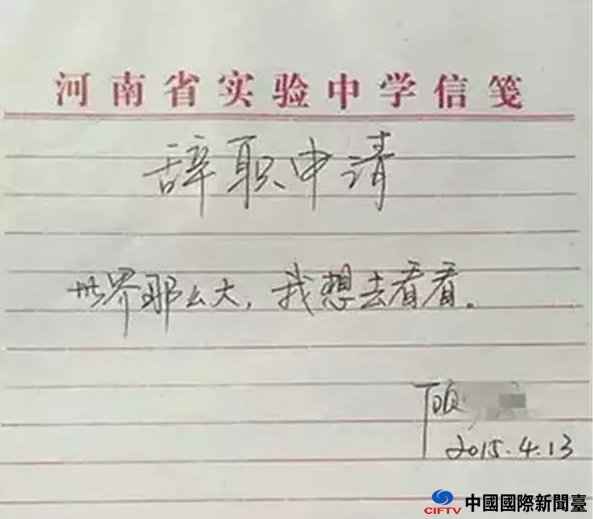 河南省实验中学信笺
辞职申请
世界那么大，我想去看看。
顾
2015.4.13
CIFTV
中國國際新聞臺